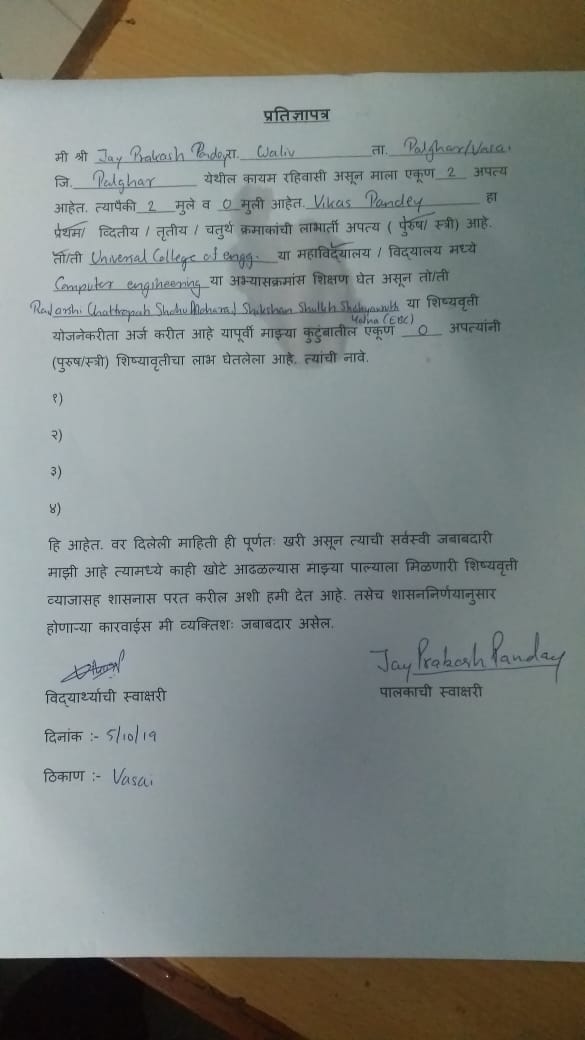 प्रतिज्ञापत्र
मी श्री Jay Prakash Pandey रा. Waliv ता. Palghar/Vasai
जि. Palghar येथील कायम रहिवासी असून माला एकूण 2 अपत्य
आहेत. त्यापैकी 2 मुले व 0 मुली आहेत. Vikas Pandey हा
प्रथम/ व्दितीय / तृतीय / चतुर्थ क्रमाकांची लाभार्ती अपत्य ( पुरुष/ स्त्री) आहे.
तो/ती Universal College of engg. या महाविद्यालय / विद्यालय मध्ये
Computer engineering या अभ्यासक्रमांस शिक्षण घेत असून तो/ती
Rajarshi Chattrapati Shahu Maharaj Shikshan Shulkh या शिष्यवृती
योजनेकरीता अर्ज करीत आहे यापूर्वी माझ्या कुटुंबातील एकूण 0 अपत्यांनी
(EBC)
(पुरुष/स्त्री) शिष्यावृतीचा लाभ घेतलेला आहे. त्यांची नावे.
१)
२)
३)
४)
हि आहेत. वर दिलेली माहिती ही पूर्णतः खरी असून त्याची सर्वस्वी जबाबदारी
माझी आहे त्यामध्ये काही खोटे आढळल्यास माझ्या पाल्याला मिळणारी शिष्यवृती
व्याजासह शासनास परत करील अशी हमी देत आहे. तसेच शासननिर्णयानुसार
होणाऱ्या कारवाईस मी व्यक्तिशः जबाबदार असेल.
Jay Prakash Panday
विद्यार्थ्याची स्वाक्षरी पालकाची स्वाक्षरी
दिनांक :- 5/10/19
ठिकाण :- Vasai